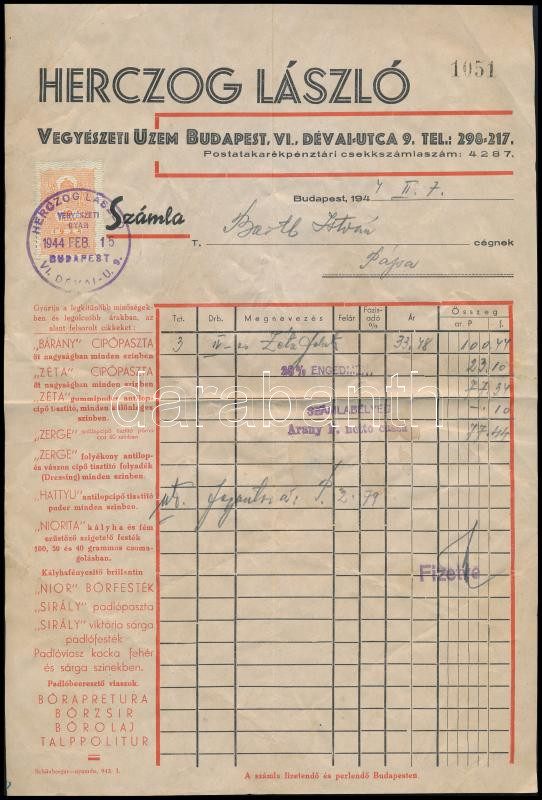 HERCZOG LÁSZLÓ
1051
VEGYÉSZETI ÜZEM BUDAPEST, VI., DÉVAI-UTCA 9. TEL.: 298-217.
Postatakarékpénztári csekkszámlaszám: 4287.
HERCZOG LÁSZLÓ
VEGYÉSZETI
GYÁR
1944 FEB. 15
BUDAPEST
VI. DÉVAI-U. 9.
Budapest, 194 4 II. 7.
Számla
T. Barth István cégnek
Pápa
Gyártja a legkitünőbb minőségek-
ben és legolcsóbb árakban, az
alant felsorolt cikkeket:
„BÁRÁNY" CIPŐPASZTA
öt nagyságban minden szinben
„ZÉTA" CIPŐPASZTA
öt nagyságban minden szinben
„ZÉTA" gummipodor antilop-
cipő tisztító, minden létező
szinben
„ZERGE" antilopcipő tisztító
„ZERGE" folyékony antilop-
és vászon cipő tisztító folyadék
(Dressing) minden szinben.
„HATTYU" antilopcipő tisztító
puder minden szinben.
„NIORITA" kályha és fém
ezüstöző szigetelő festék
100, 50 és 40 grammos csoma-
golásban.
Kályhafényesítő brillantin
„NIOR" BŐRFESTÉK
„SIRÁLY" padlópaszta
„SIRÁLY" viktória sárga
padlófesték
Padlóviasz kocka fehér
és sárga szinekben.
Padlóbeeresztő viaszok.
BŐRAPRETURA
BŐRZSIR
BŐROLAJ
TALPPOLITUR
Tct. Drb. Megnevezés Felár Fázis-adó % Ár Összeg
ar. P f.
3 33.48 100.44
ENGEDM... 23.10
77.34
SZÁMLABÉLYEG -.10
Arany P. nettó cassa 77.44
P. 2.79
Fizetve
darabanth
Schönberger-nyomda, 943. I.
A számla fizetendő és perlendő Budapesten.